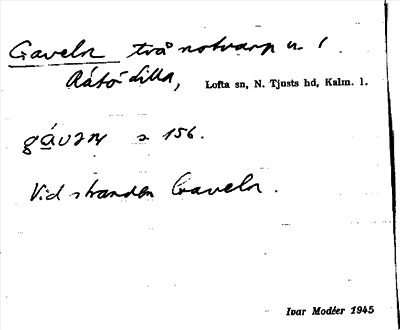 Gaveln två notvarp u. l
Råtö lilla, Lofta sn, N. Tjusts hd, Kalm. l.
s 156.
Vid stranden Gaveln.
Ivar Modéer 1945